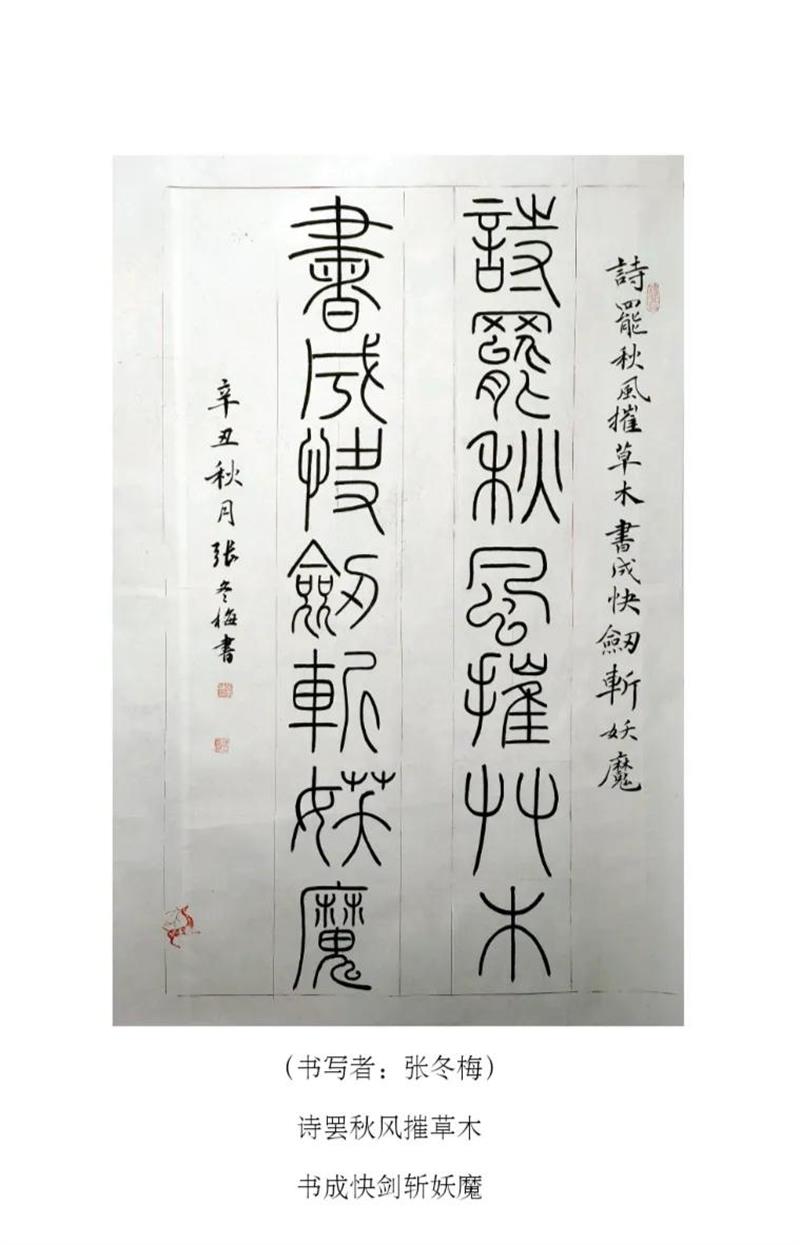 詩罷秋風摧草木書成快劒斬妖魔
詩罷秋風摧艸木
書成快劒斬媄魔
辛丑秋月張冬梅書
（书写者：张冬梅）
诗罢秋风摧草木
书成快剑斩妖魔